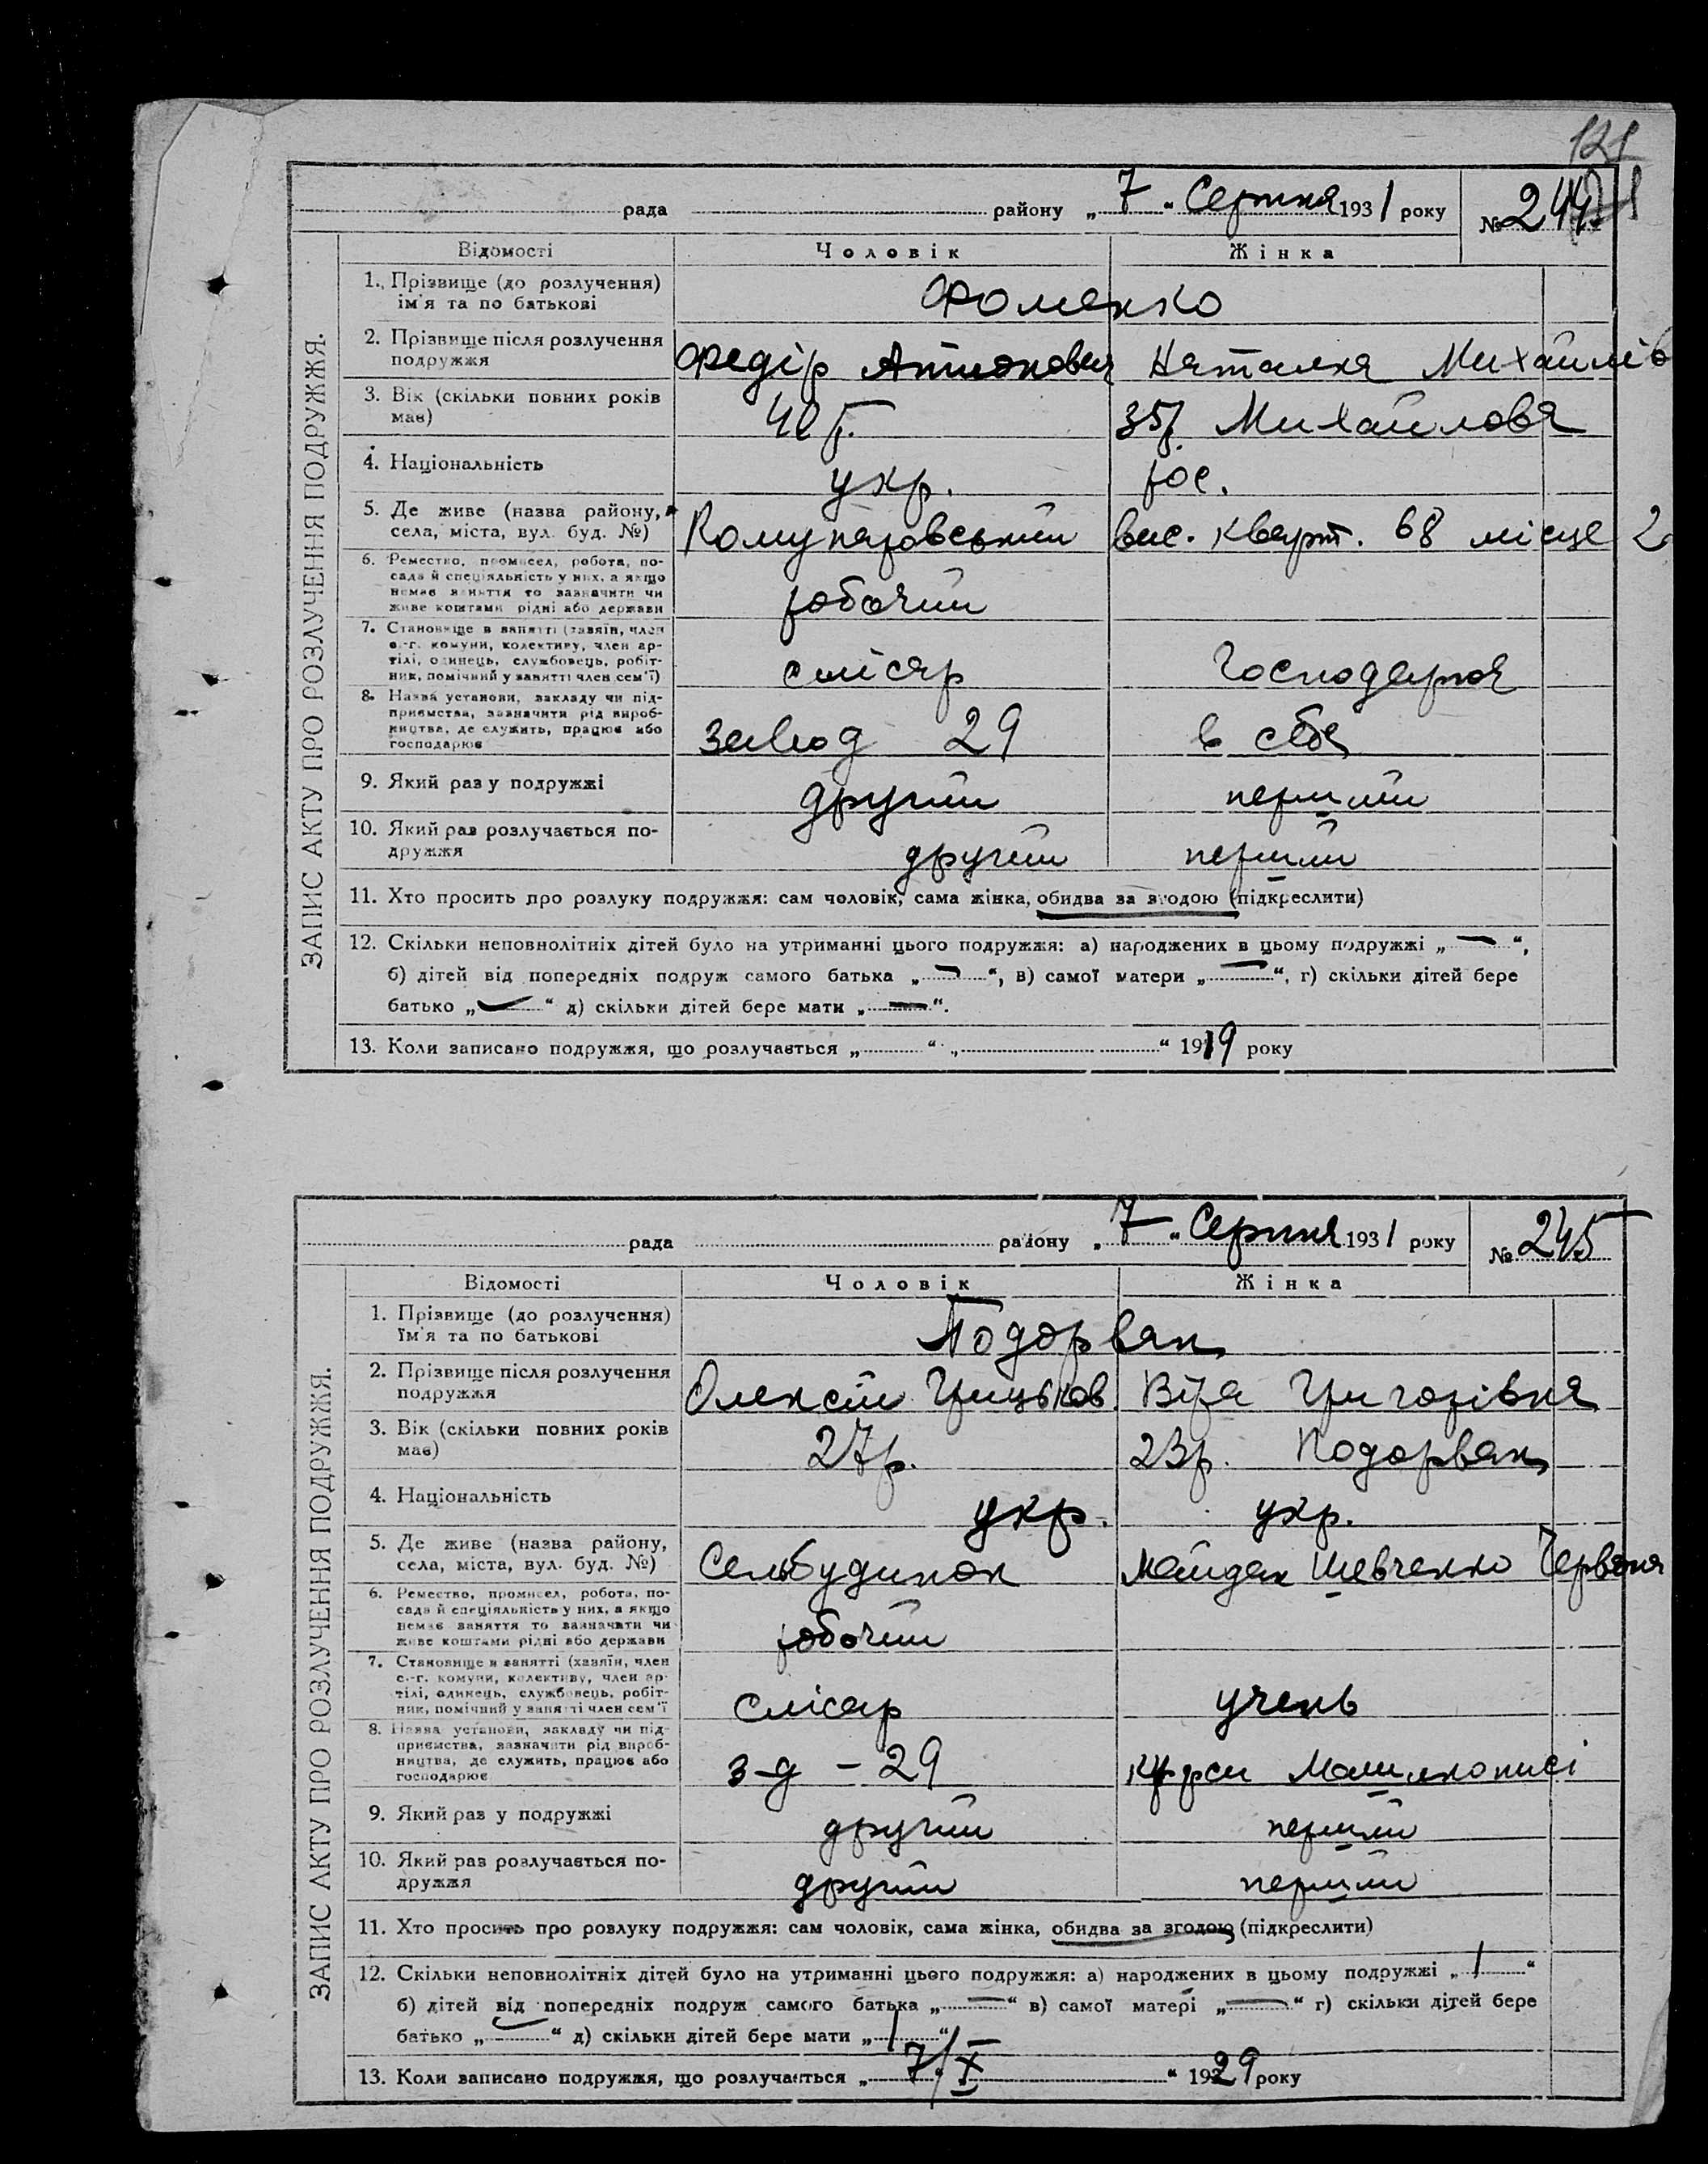 121
рада района „7" Серпня 1931 року № 244
ЗАПИС АКТУ ПРО РОЗЛУЧЕННЯ ПОДРУЖЖЯ.
Відомості Чоловік Жінка
1. Прізвище (до розлучення) ім'я та по батькові Фоменко
2. Прізвище після розлучення подружжя Федір Антонович Наталка Михайлів
3. Вік (скільки повних років має) 40 р. 35р. Михайлова
4. Національність укр. рос.
5. Де живе (назва району, села, міста, вул. буд. №) Комунаровський вис. кварт. 68 місце 2
6. Ремество, промисел, робота, посада й спеціяльність у них, а якщо немає заняття то зазначити чи живе коштами рідні або держави робочий
7. Становище в занятті (хазяїн, член с.-г. комуни, колективу, член артілі, одинець, службовець, робітник, помічний у занятті член сем'ї) слісар Господарка
8. Назва установи, закладу чи підприємства, зазначити рід виробництва, де служить, працює або господарює завод 29 в себе
9. Який раз у подружжі другий перший
10. Який раз розлучається подружжя другий перший
11. Хто просить про розлуку подружжя: сам чоловік, сама жінка, обидва за згодою (підкреслити)
12. Скільки неповнолітніх дітей було на утриманні цього подружжя: а) народжених в цьому подружжі „—",
б) дітей від попередніх подруж самого батька „—", в) самої матери „—", г) скільки дітей бере
батько „—" д) скільки дітей бере мати „—".
13. Коли записано подружжя, що розлучається „ " „ " 1919 року
рада району „7" Серпня 1931 року № 245
ЗАПИС АКТУ ПРО РОЗЛУЧЕННЯ ПОДРУЖЖЯ.
Відомості Чоловік Жінка
1. Прізвище (до розлучення) Ім'я та по батькові Подорван
2. Прізвище після розлучення подружжя Олексій Грицьков. Віра Григорівна
3. Вік (скільки повних років має) 27р. 23р. Подорван
4. Національність укр. укр.
5. Де живе (назва району, села, міста, вул. буд. №) Сельбудинок Майдан Шевченко Червона
6. Ремество, промисел, робота, посада й спеціяльність у них, а якщо немає заняття то зазначати чи живе коштами рідні або держави робочий
7. Становище в занятті (хазяїн, член с.-г. комуни, колективу, член артілі, одинець, службовець, робітник, помічний у занятті член сем'ї Слісар учень
8. Назва установи, закладу чи підприємства, зазначити рід виробництва, де служить, працює або господарює з-д - 29 курси Машинописі
9. Який раз у подружжі другий перший
10. Який раз розлучається подружжя другий перший
11. Хто просить про розлуку подружжя: сам чоловік, сама жінка, обидва за згодою (підкреслити)
12. Скільки неповнолітніх дітей було на утриманні цього подружжя: а) народжених в цьому подружжі „1"
б) дітей від попередніх подруж самого батька „—" в) самої матері „—" г) скільки дітей бере
батько „—" д) скільки дітей бере мати „1"
13. Коли записано подружжя, що розлучається „7/X " 1929 року